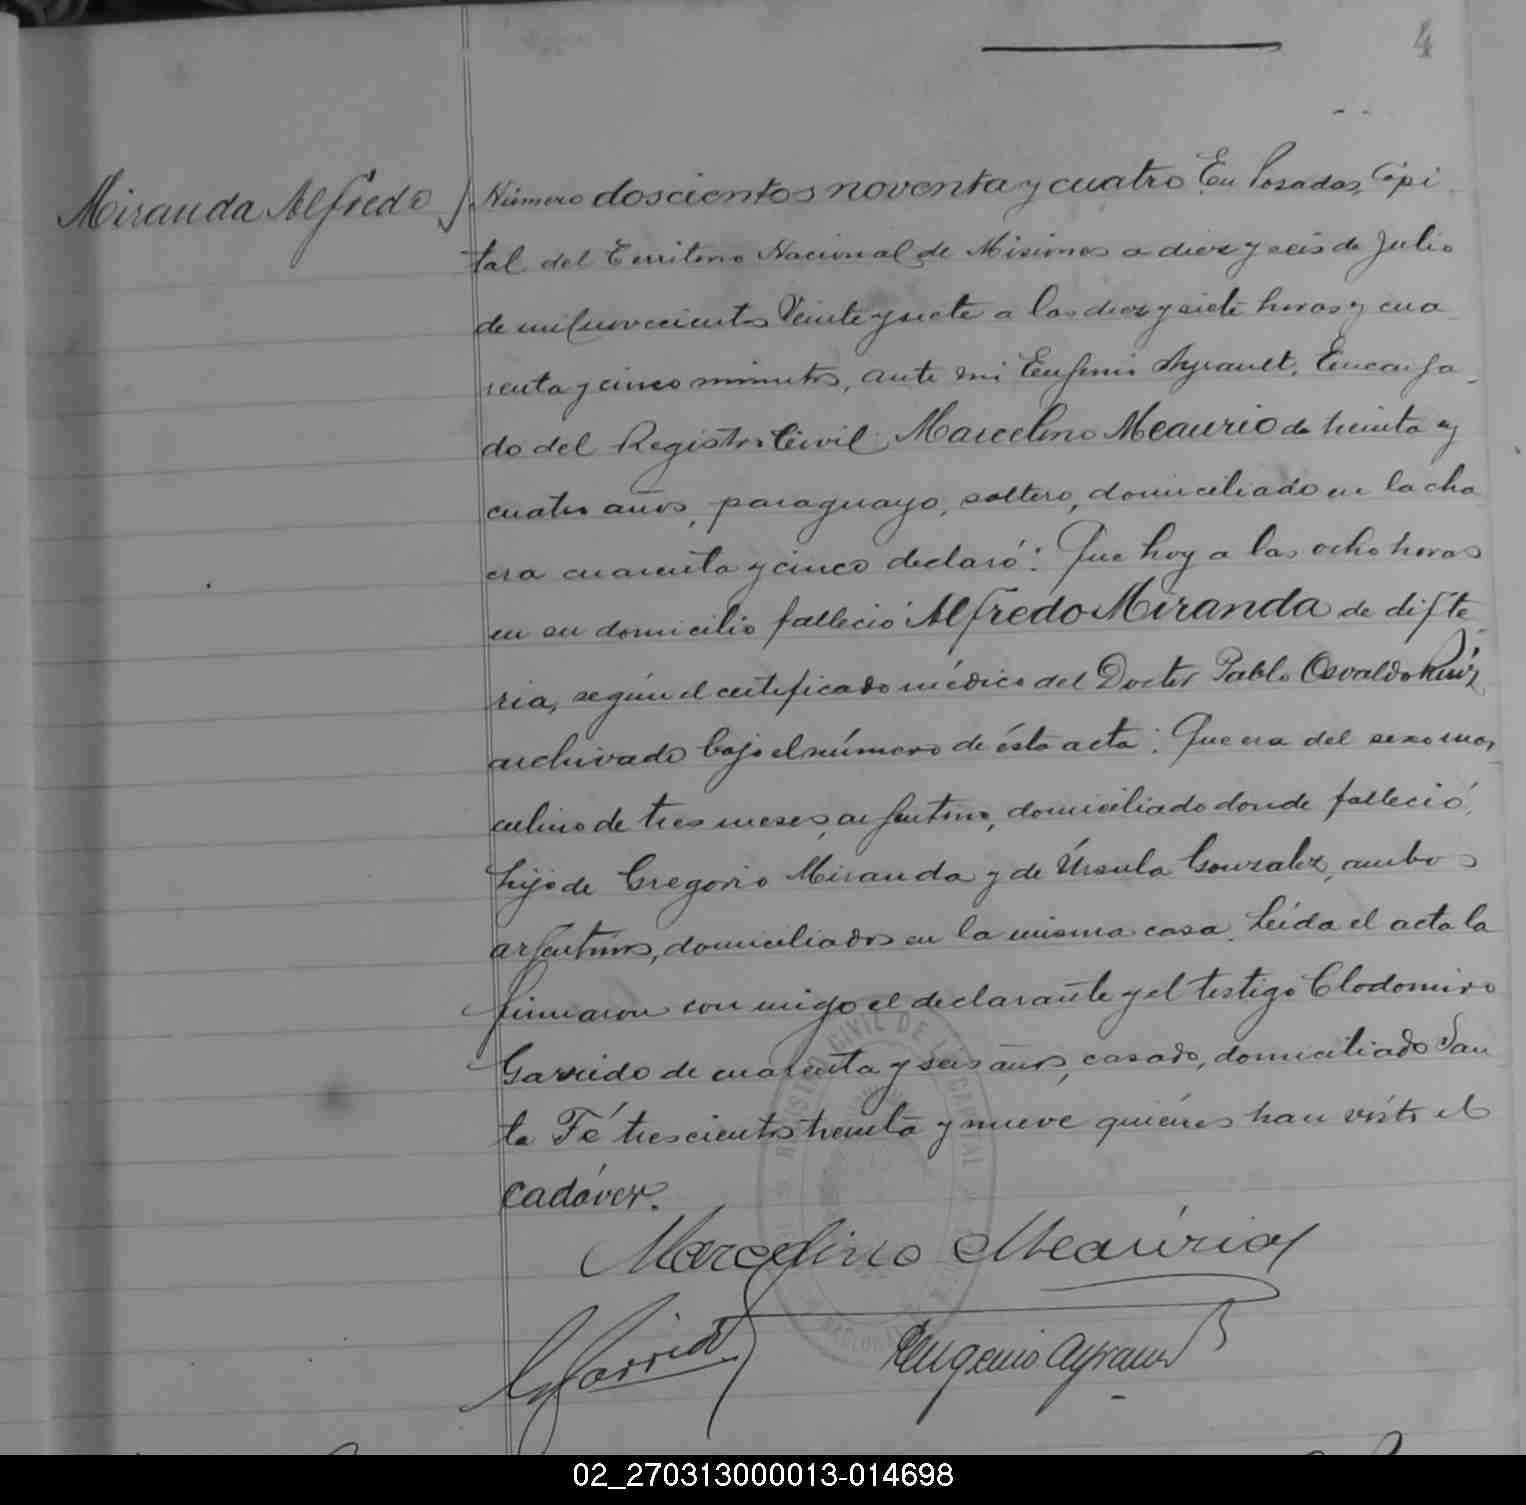 4
Miranda Alfredo
Número doscientos noventa y cuatro En Posadas, Capi
tal del Territorio Nacional de Misiones a diez y seis de Julio
de mil novecientos Veinte y siete a las diez y siete horas y cua
renta y cinco minutos, ante mi Eugenio Ayrault, Encarga-
do del Registro Civil: Marcelino Meaurio de treinta y
cuatro años, paraguayo, soltero, domiciliado en la cha
cra cuarenta y cinco declaró: Que hoy a las ocho horas
en su domicilio falleció Alfredo Miranda de difte-
ria, según el certificado médico del Doctor Pablo Osvaldo Ruiz
archivado bajo el número de ésta acta: Que era del sexo mas-
culino de tres meses, argentino, domiciliado donde falleció,
hijo de Gregorio Miranda y de Úrsula Gonzalez, ambos
argentinos, domiciliados en la misma casa. Leída el acta la
firmaron con migo el declarante y el testigo Clodomiro
Garrido de cuarenta y seis años, casado, domiciliado San
ta Fé trescientos treinta y nueve quiénes han visto el
cadáver.
Marcelino Meaurio
REGISTRO CIVIL DE LA CAPITAL
C Garrido
Eugenio Ayrault
02_270313000013-014698